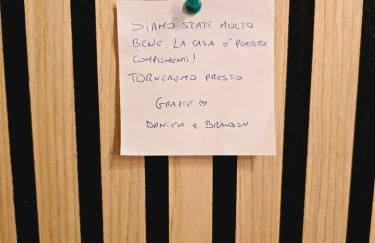 SIAMO STATI MOLTO
BENE. LA CASA É PERFETTA,
COMPLIMENTI!
TORNEREMO PRESTO
GRAZIE ♡
DANIELA E BRANDON